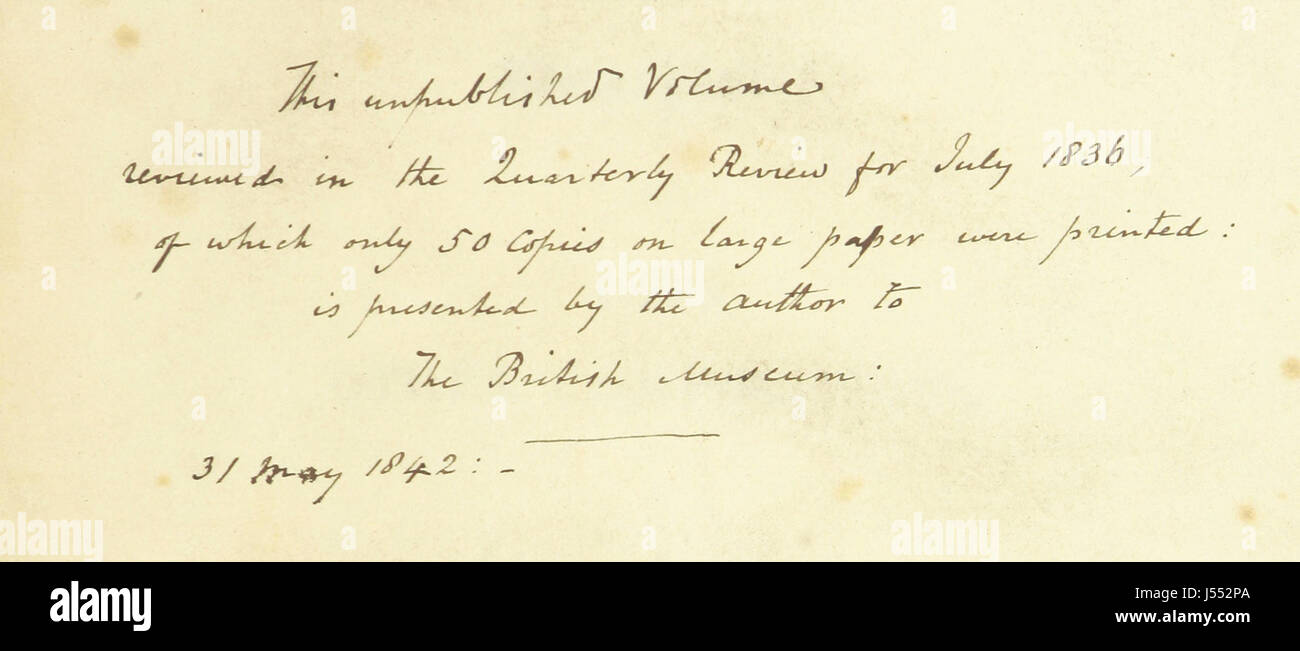 This unpublished Volume
reviewed in the Quarterly Review for July 1836,
of which only 50 Copies on large paper were printed:
is presented by the author to
The British Museum:
31 May 1842: -
alamy
alamy
alamy
alamy
alamy
alamy
alamy
Image ID: J552PA
www.alamy.com